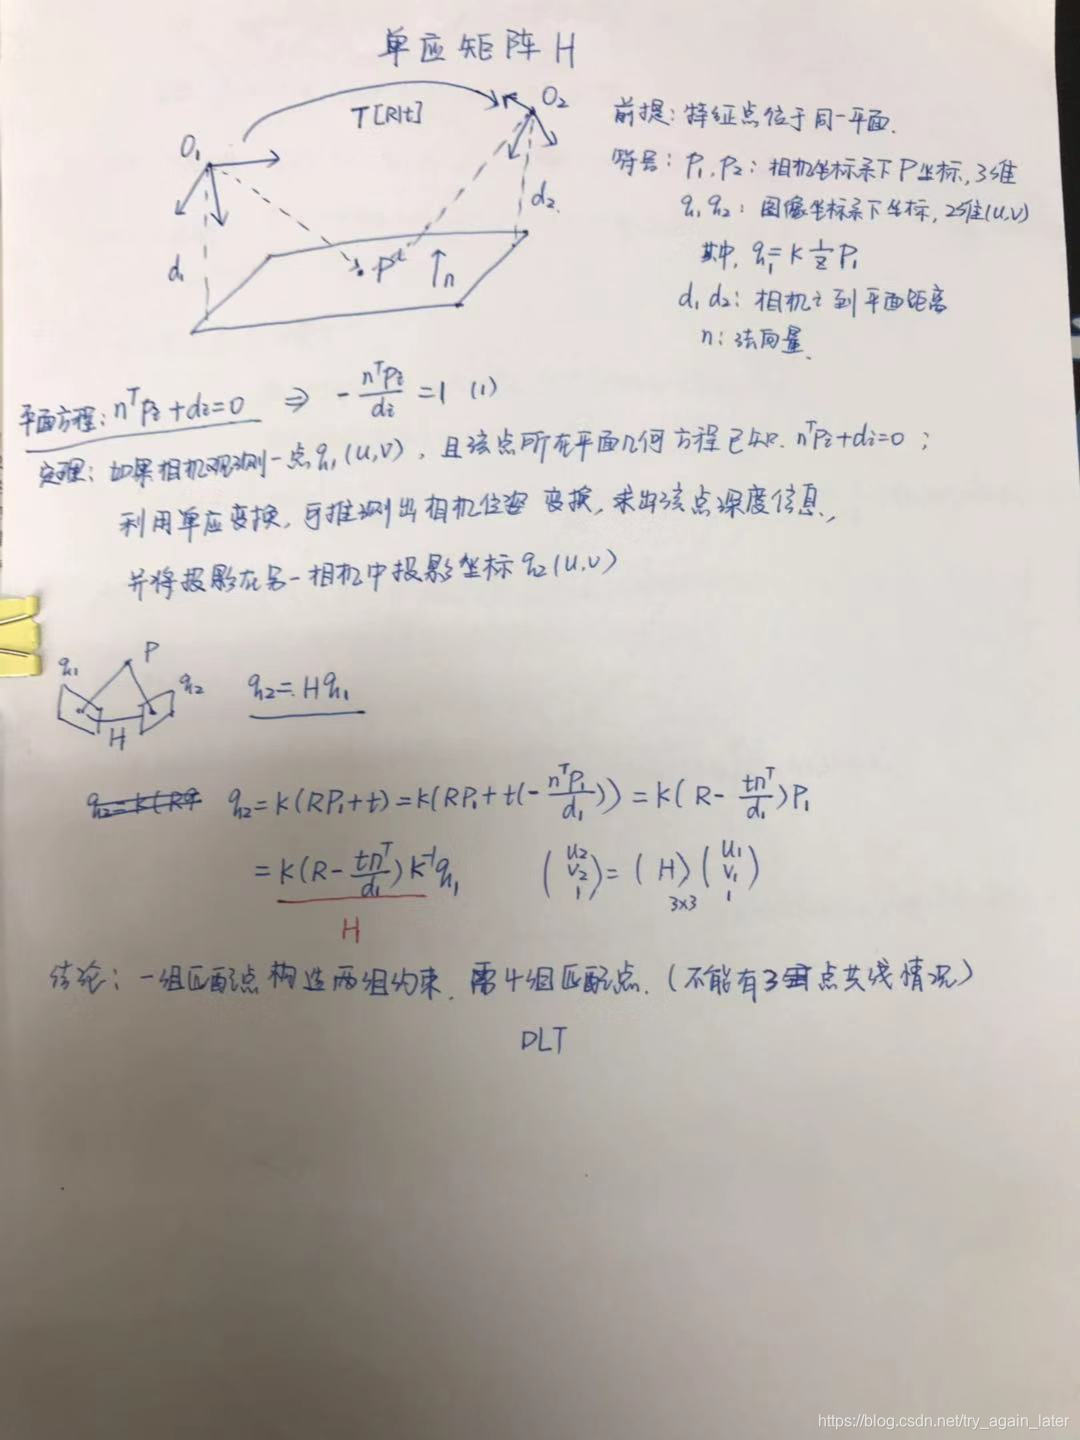 单应矩阵 H
T[R|t]
O₁
O₂
d₁
d₂
P
n
前提：特征点位于同一平面.
符号：P₁, P₂：相机坐标系下P坐标, 3维
q₁ q₂：图像坐标系下坐标, 2维(u,v)
其中, q₁ = K 1/z P₁
d₁ d₂：相机i到平面距离
n：法向量.
平面方程：nᵀPi + di = 0 ⇒ - nᵀPi/di = 1 (1)
定理：如果相机观测到一点q₁(u,v), 且该点所在平面几何方程已知. nᵀPi + di = 0 ;
利用单应变换, 可推测出相机位姿变换, 求出该点深度信息.,
并将投影在另一相机中投影坐标q₂(u,v)
q₁ P q₂ H
q₂ = Hq₁
q₂ = K(RP₁+t) = K(RP₁ + t(- nᵀP₁/d₁)) = K(R - tnᵀ/d₁)P₁
= K(R - tnᵀ/d₁)K⁻¹q₁ (u₂ v₂ 1) = (H)3×3 (u₁ v₁ 1)
H
结论：一组匹配点构造两组约束. 需4组匹配点. (不能有3点共线情况)
DLT
https://blog.csdn.net/try_again_later